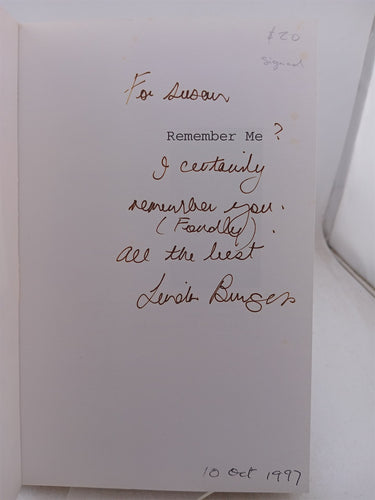 $20
signed
For Susan
Remember Me ?
I certainly
remember you.
(Fondly).
All the best
Linda Burgess
10 Oct 1997